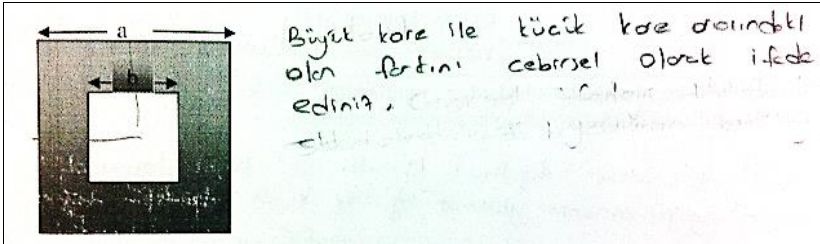 a
b
Büyük kare ile küçük kare arasındaki
alan farkını cebirsel olarak ifade
ediniz.